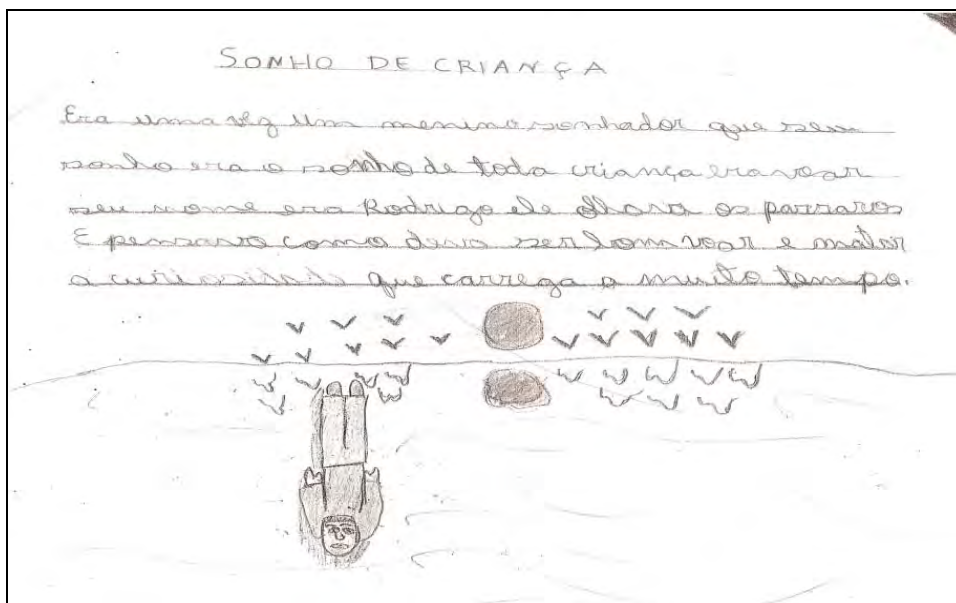 SONHO DE CRIANÇA
Era uma vez um menino sonhador que seu
sonho era o sonho de toda criança era voar
seu nome era Rodrigo ele olhava os parraros
E pensava como deve ser bom voar e matar
a curiosidade que carrega a muito tempo.